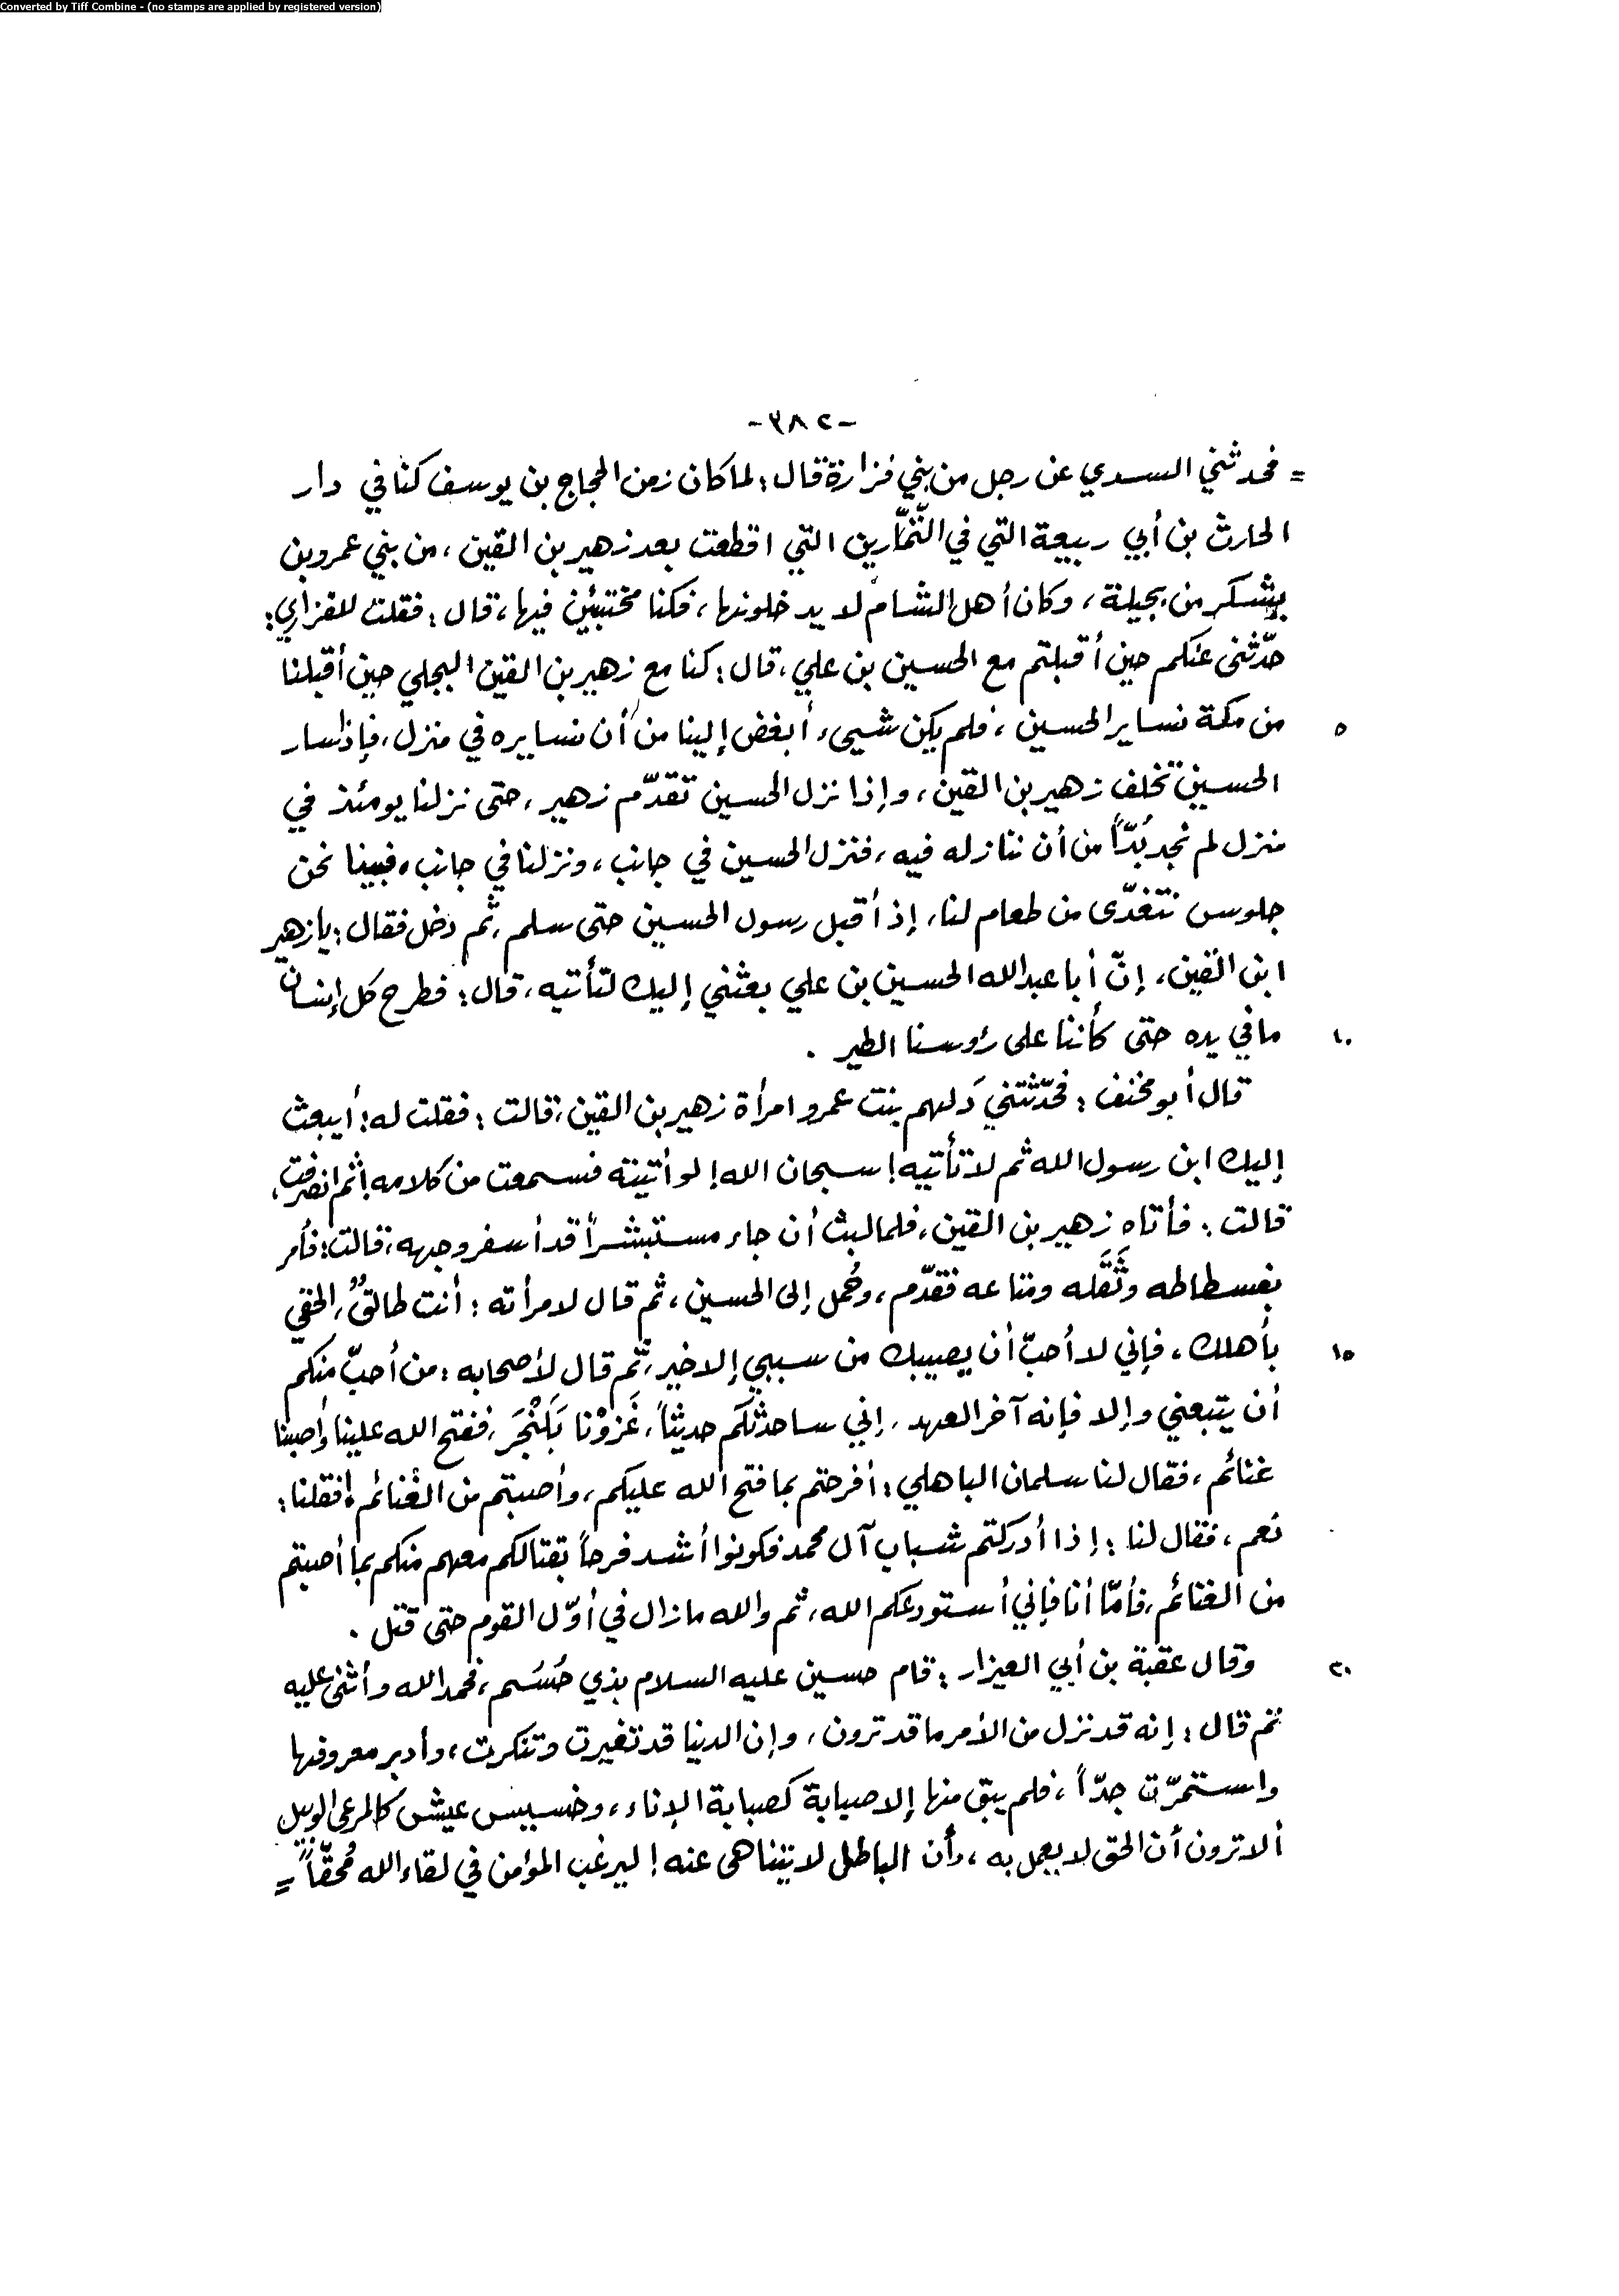 Converted by Tiff Combine - (no stamps are applied by registered version)
-٣٨٢-
= فحدثني السدي عن رجل من بني فزارة قال: لما كان زمن الحجاج بن يوسف كنا في دار
الحارث بن أبي ربيعة التي في التّمّارين التي اقطعت بعد زهير بن القين، من بني عمرو بن
يشكر من بجيلة، وكان أهل الشام لا يدخلونها، فكنا مختبئين فيها، قال: فقلت للفزاري:
حدّثني عنكم حين أقبلتم مع الحسين بن علي، قال: كنا مع زهير بن القين البجلي حين أقبلنا
٥ من مكة نساير الحسين، فلم يكن شيىء أبغض إلينا من أن نسايره في منزل، فإذا سار
الحسين تخلف زهير بن القين، وإذا نزل الحسين تقدّم زهير، حتى نزلنا يومئذ في
منزل لم نجد بُدّاً من أن ننازله فيه، فنزل الحسين في جانب، ونزلنا في جانب، فبينا نحن
جلوس نتغدّى من طعام لنا، إذ أقبل رسول الحسين حتى سلم، ثم دخل فقال: يا زهير
ابن القين، إنّ أبا عبدالله الحسين بن علي بعثني إليك لتأتيه، قال: فطرح كل إنسان
١٠ ما في يده حتى كأننا على رؤوسنا الطير.
قال أبو مخنف: فحدّثتني دَلهم بنت عمرو امرأة زهير بن القين، قالت: فقلت له: أيبعث
إليك ابن رسول الله ثم لا تأتيه! سبحان الله! لو أتيته فسمعت من كلامه! ثم انصرفت،
قالت: فأتاه زهير بن القين، فلما لبث أن جاء مستبشراً قد أسفر وجهه، قالت: فأمر
بفسطاطه وثَقَله ومتاعه فقدّم، وحُمل إلى الحسين، ثم قال لامرأته: أنت طالقٌ، الحقي
١٥ بأهلك، فإني لا أحبّ أن يصيبك من سببي إلا خير، ثم قال لأصحابه: من أحبّ منكم
أن يتبعني وإلا فإنه آخر العهد، إني ساحدثكم حديثاً، غَزوْنا بَلَنْجَر، ففتح الله علينا وأصبنا
غنائم، فقال لنا سلمان الباهلي: أفرحتم بما فتح الله عليكم، وأصبتم من الغنائم؟ فقلنا:
نعم، فقال لنا: إذا أدركتم شباب آل محمد فكونوا أشد فرحاً بقتالكم معهم منكم بما أصبتم
من الغنائم، فأمّا أنا فإني أستودعكم الله، ثم والله ما زال في أوّل القوم حتى قتل.
٢٠ وقال عقبة بن أبي العيزار: قام حسين عليه السلام بذي حُسُم، فحمد الله وأثنى عليه
ثم قال: إنه قد نزل من الأمر ما قد ترون، وإن الدنيا قد تغيرت وتنكرت، وأدبر معروفها
واستمرّت جدّاً، فلم يبق منها إلا صبابة كصبابة الإناء، وخسيس عيش كالمرعى الوبيل
ألا ترون أن الحق لا يعمل به، وأن الباطل لا يتناهى عنه! ليرغب المؤمن في لقاء الله مُحقّاً، =